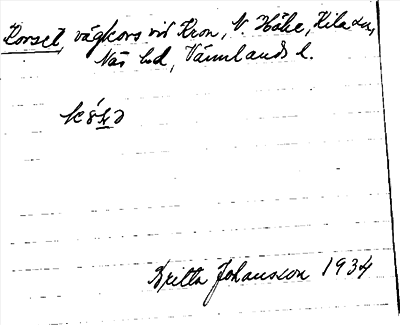 Korset, vägkors vid Kron, V. Höke, Kila sn,
Näs hd, Värmlands l.
Britta Johansson 1934